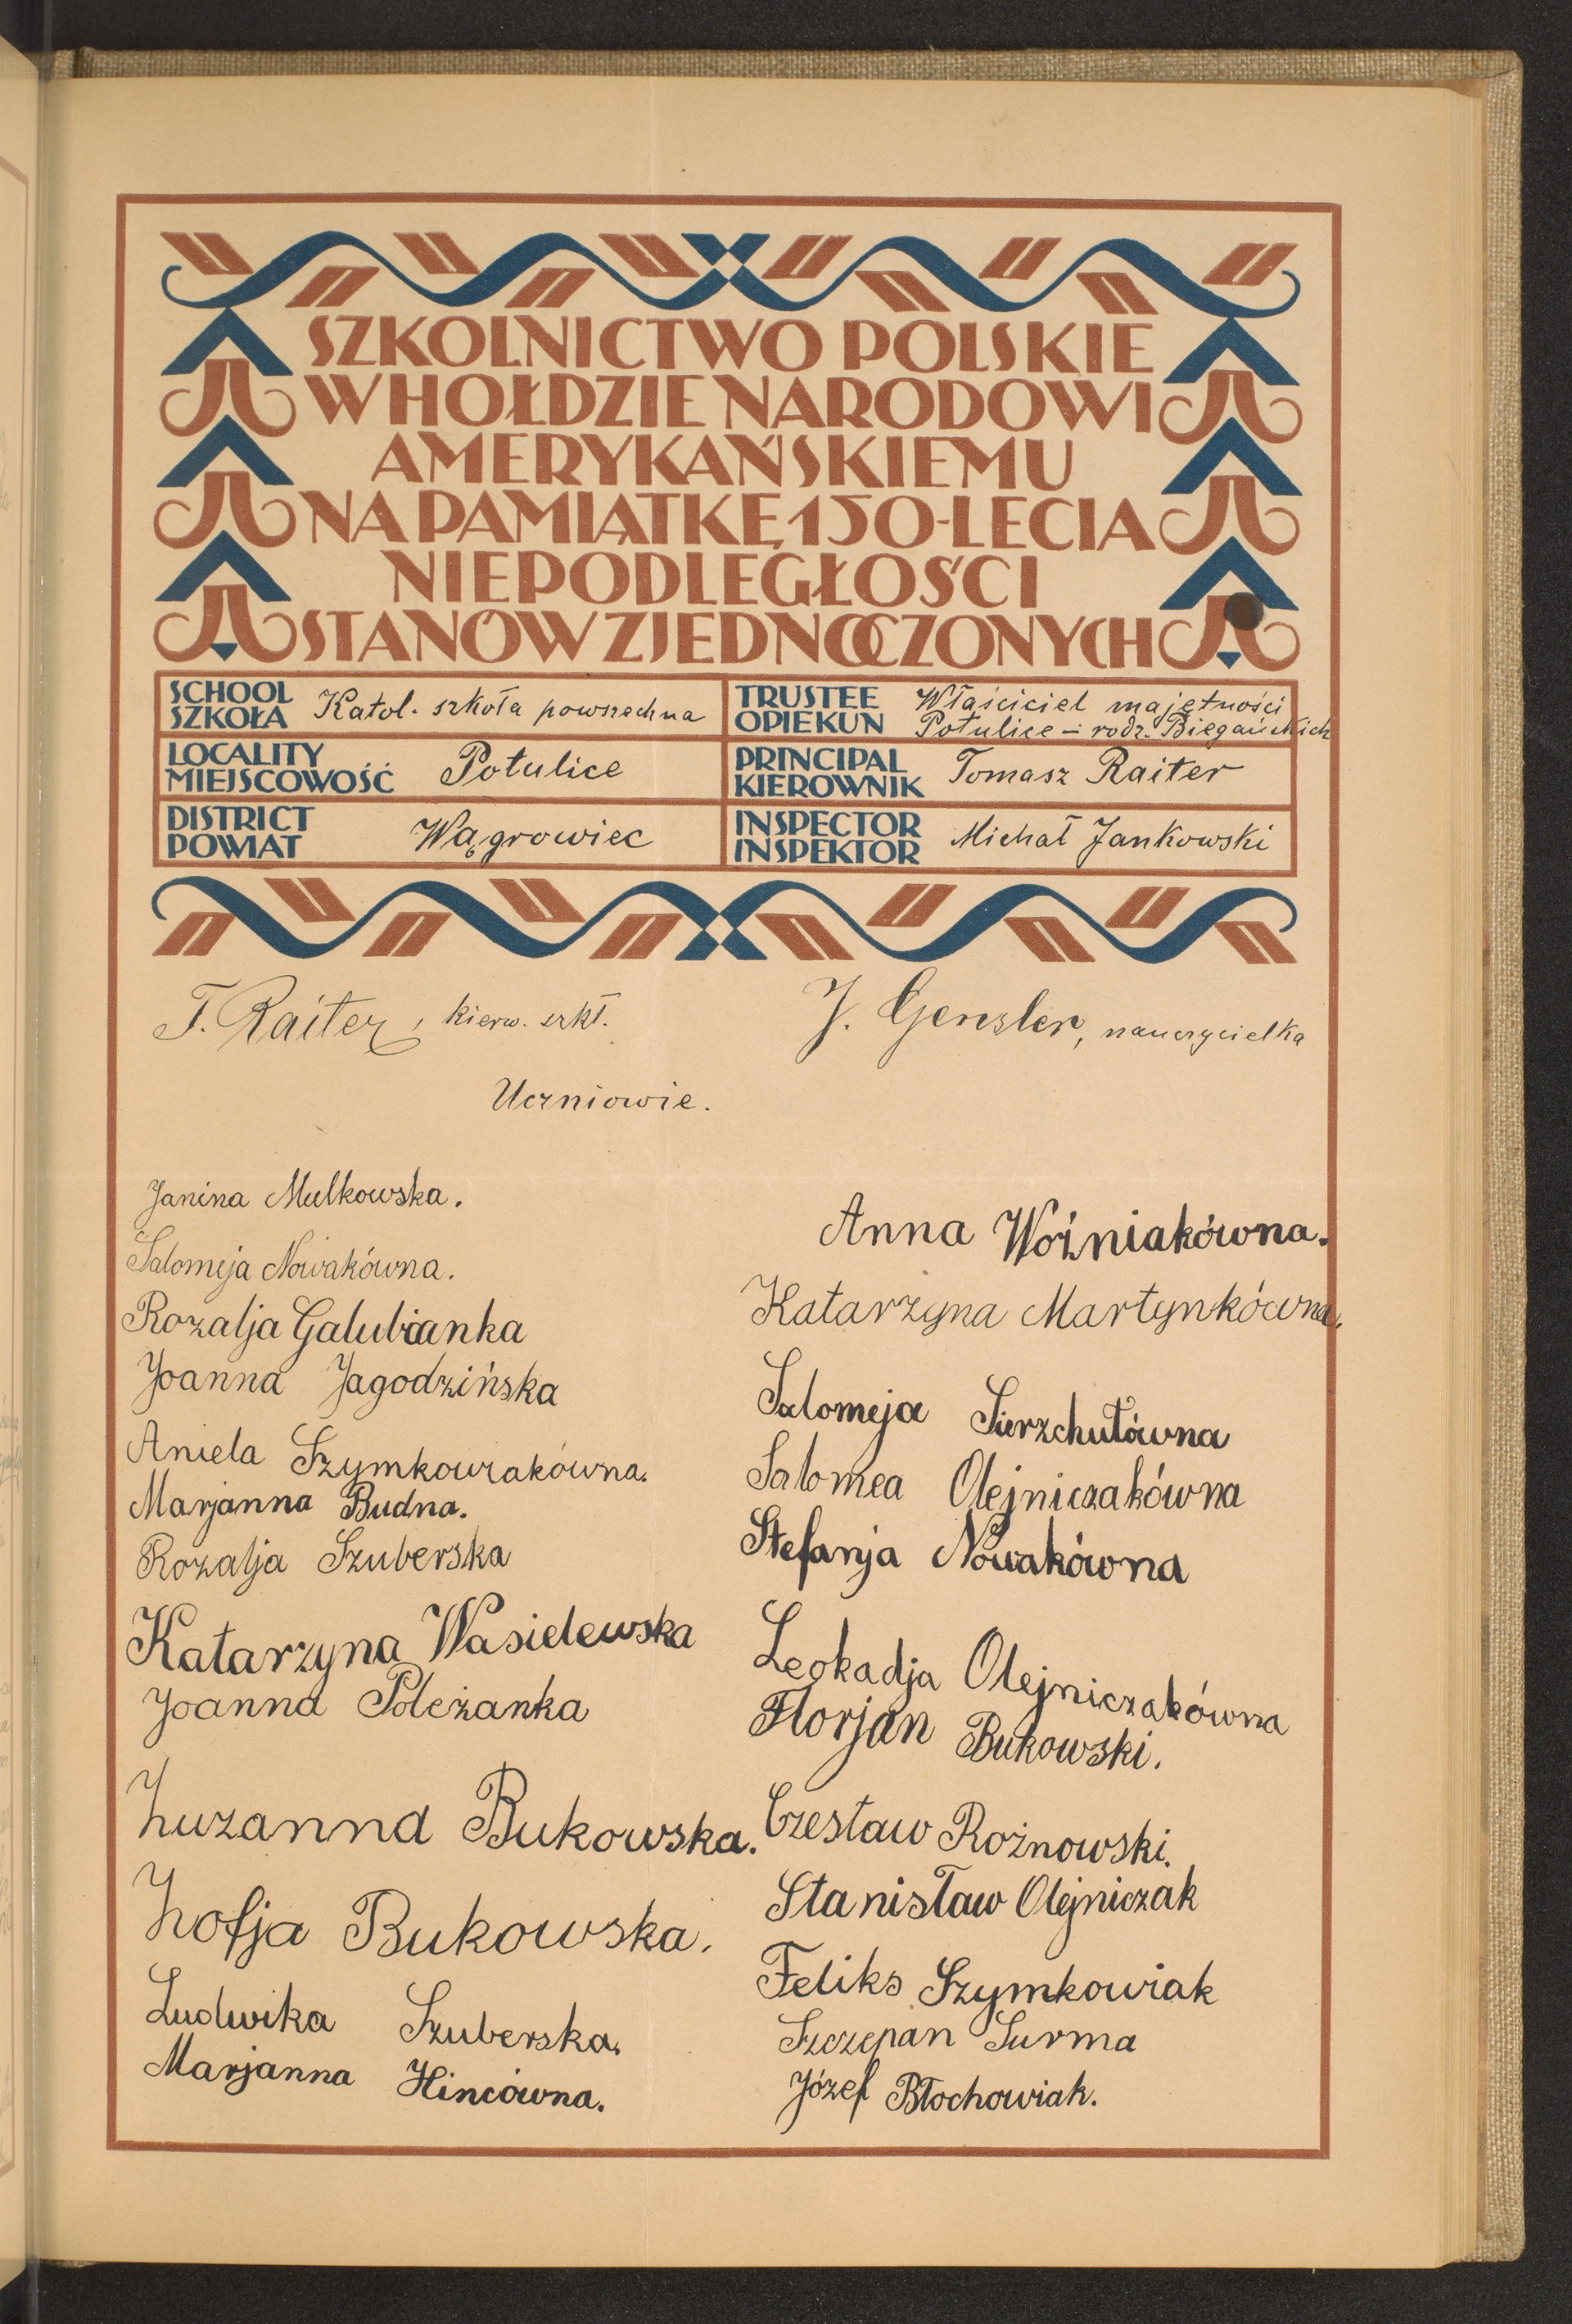 SZKOLNICTWO POLSKIE
W HOŁDZIE NARODOWI
AMERYKAŃSKIEMU
NA PAMIĄTKĘ 150-LECIA
NIEPODLEGŁOŚCI
STANÓW ZJEDNOCZONYCH
SCHOOL
SZKOŁA
Katol. szkoła powszechna
TRUSTEE
OPIEKUN
Właściciel majętności
Potulice – rodz. Biegańskich
LOCALITY
MIEJSCOWOŚĆ
Potulice
PRINCIPAL
KIEROWNIK
Tomasz Raiter
DISTRICT
POWIAT
Wągrowiec
INSPECTOR
INSPEKTOR
Michał Jankowski
T. Raiter, kierw. szkł.
J. Gensler, nauczycielka
Uczniowie.
Janina Mulkowska.
Salomeja Nowakówna.
Rozalja Galubianka
Joanna Jagodzińska
Aniela Szymkowiakówna.
Marjanna Budna.
Rozalja Szuberska
Katarzyna Wasielewska
Joanna Poleżanka
Zuzanna Bukowska.
Zofja Bukowska.
Ludwika Szuberska.
Marjanna Hincówna.
Anna Woźniakówna.
Katarzyna Martynkówna.
Salomeja Sierzchułówna
Salomea Olejniczakówna
Stefanja Nowakówna
Leokadja Olejniczakówna
Florjan Bukowski.
Czesław Rożnowski.
Stanisław Olejniczak
Feliks Szymkowiak
Szczepan Surma
Józef Błochowiak.